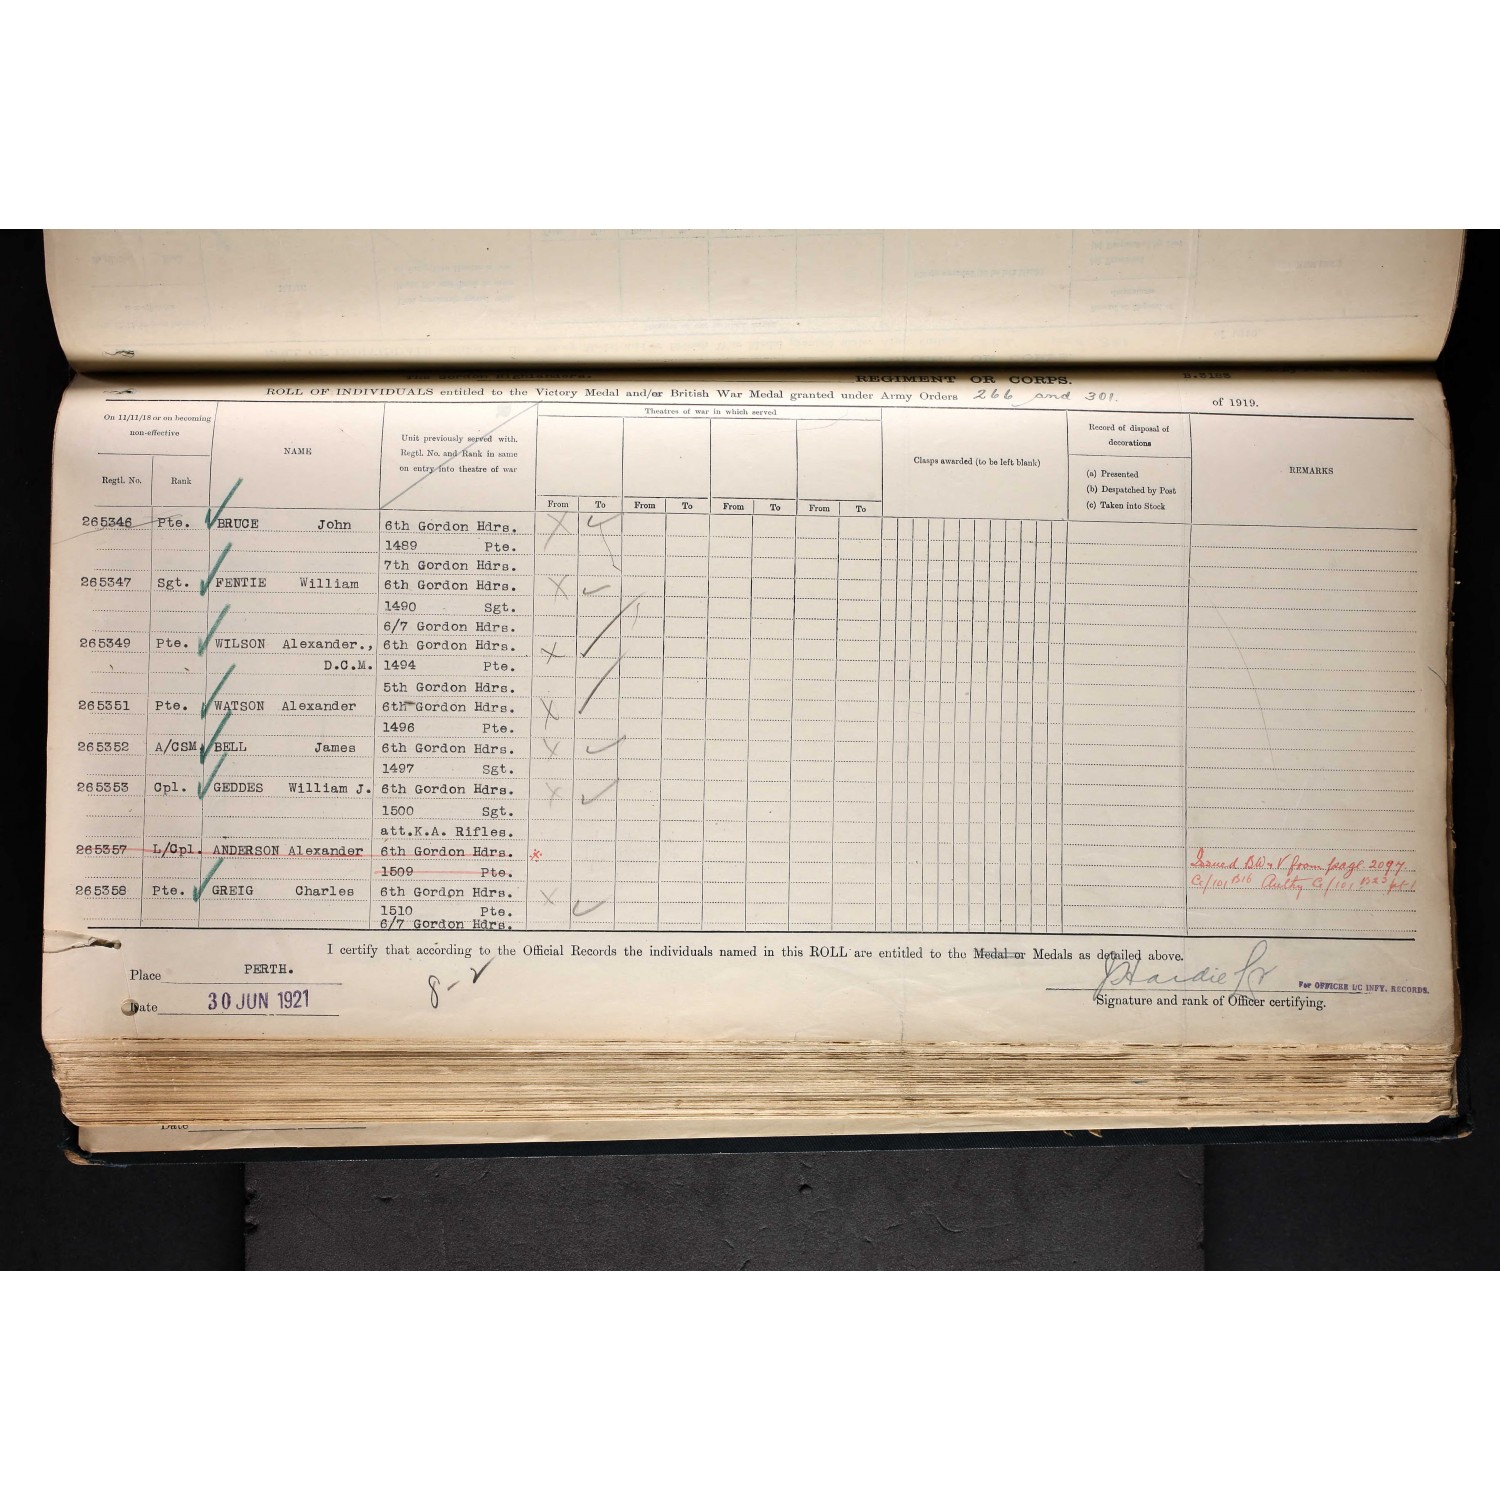 REGIMENT OR CORPS.
ROLL OF INDIVIDUALS entitled to the Victory Medal and/or British War Medal granted under Army Orders 266 and 301. of 1919.
On 11/11/18 or on becoming non-effective
Regtl. No.
Rank
NAME
Unit previously served with. Regtl. No. and Rank in same on entry into theatre of war
Theatres of war in which served
From To From To From To From To
Clasps awarded (to be left blank)
Record of disposal of decorations
(a) Presented
(b) Despatched by Post
(c) Taken into Stock
REMARKS
265346 Pte. BRUCE John 6th Gordon Hdrs.
1489 Pte.
7th Gordon Hdrs.
265347 Sgt. FENTIE William 6th Gordon Hdrs.
1490 Sgt.
6/7 Gordon Hdrs.
265349 Pte. WILSON Alexander., 6th Gordon Hdrs.
D.C.M. 1494 Pte.
5th Gordon Hdrs.
265351 Pte. WATSON Alexander 6th Gordon Hdrs.
1496 Pte.
265352 A/CSM BELL James 6th Gordon Hdrs.
1497 Sgt.
265353 Cpl. GEDDES William J. 6th Gordon Hdrs.
1500 Sgt.
att.K.A. Rifles.
265357 L/Cpl. ANDERSON Alexander 6th Gordon Hdrs.
1509 Pte.
Issued BW & V from page 2097.
265358 Pte. GREIG Charles 6th Gordon Hdrs.
1510 Pte.
6/7 Gordon Hdrs.
I certify that according to the Official Records the individuals named in this ROLL are entitled to the Medal or Medals as detailed above.
Place PERTH.
Date 30 JUN 1921
For OFFICER I/C INFY. RECORDS.
Signature and rank of Officer certifying.
Date